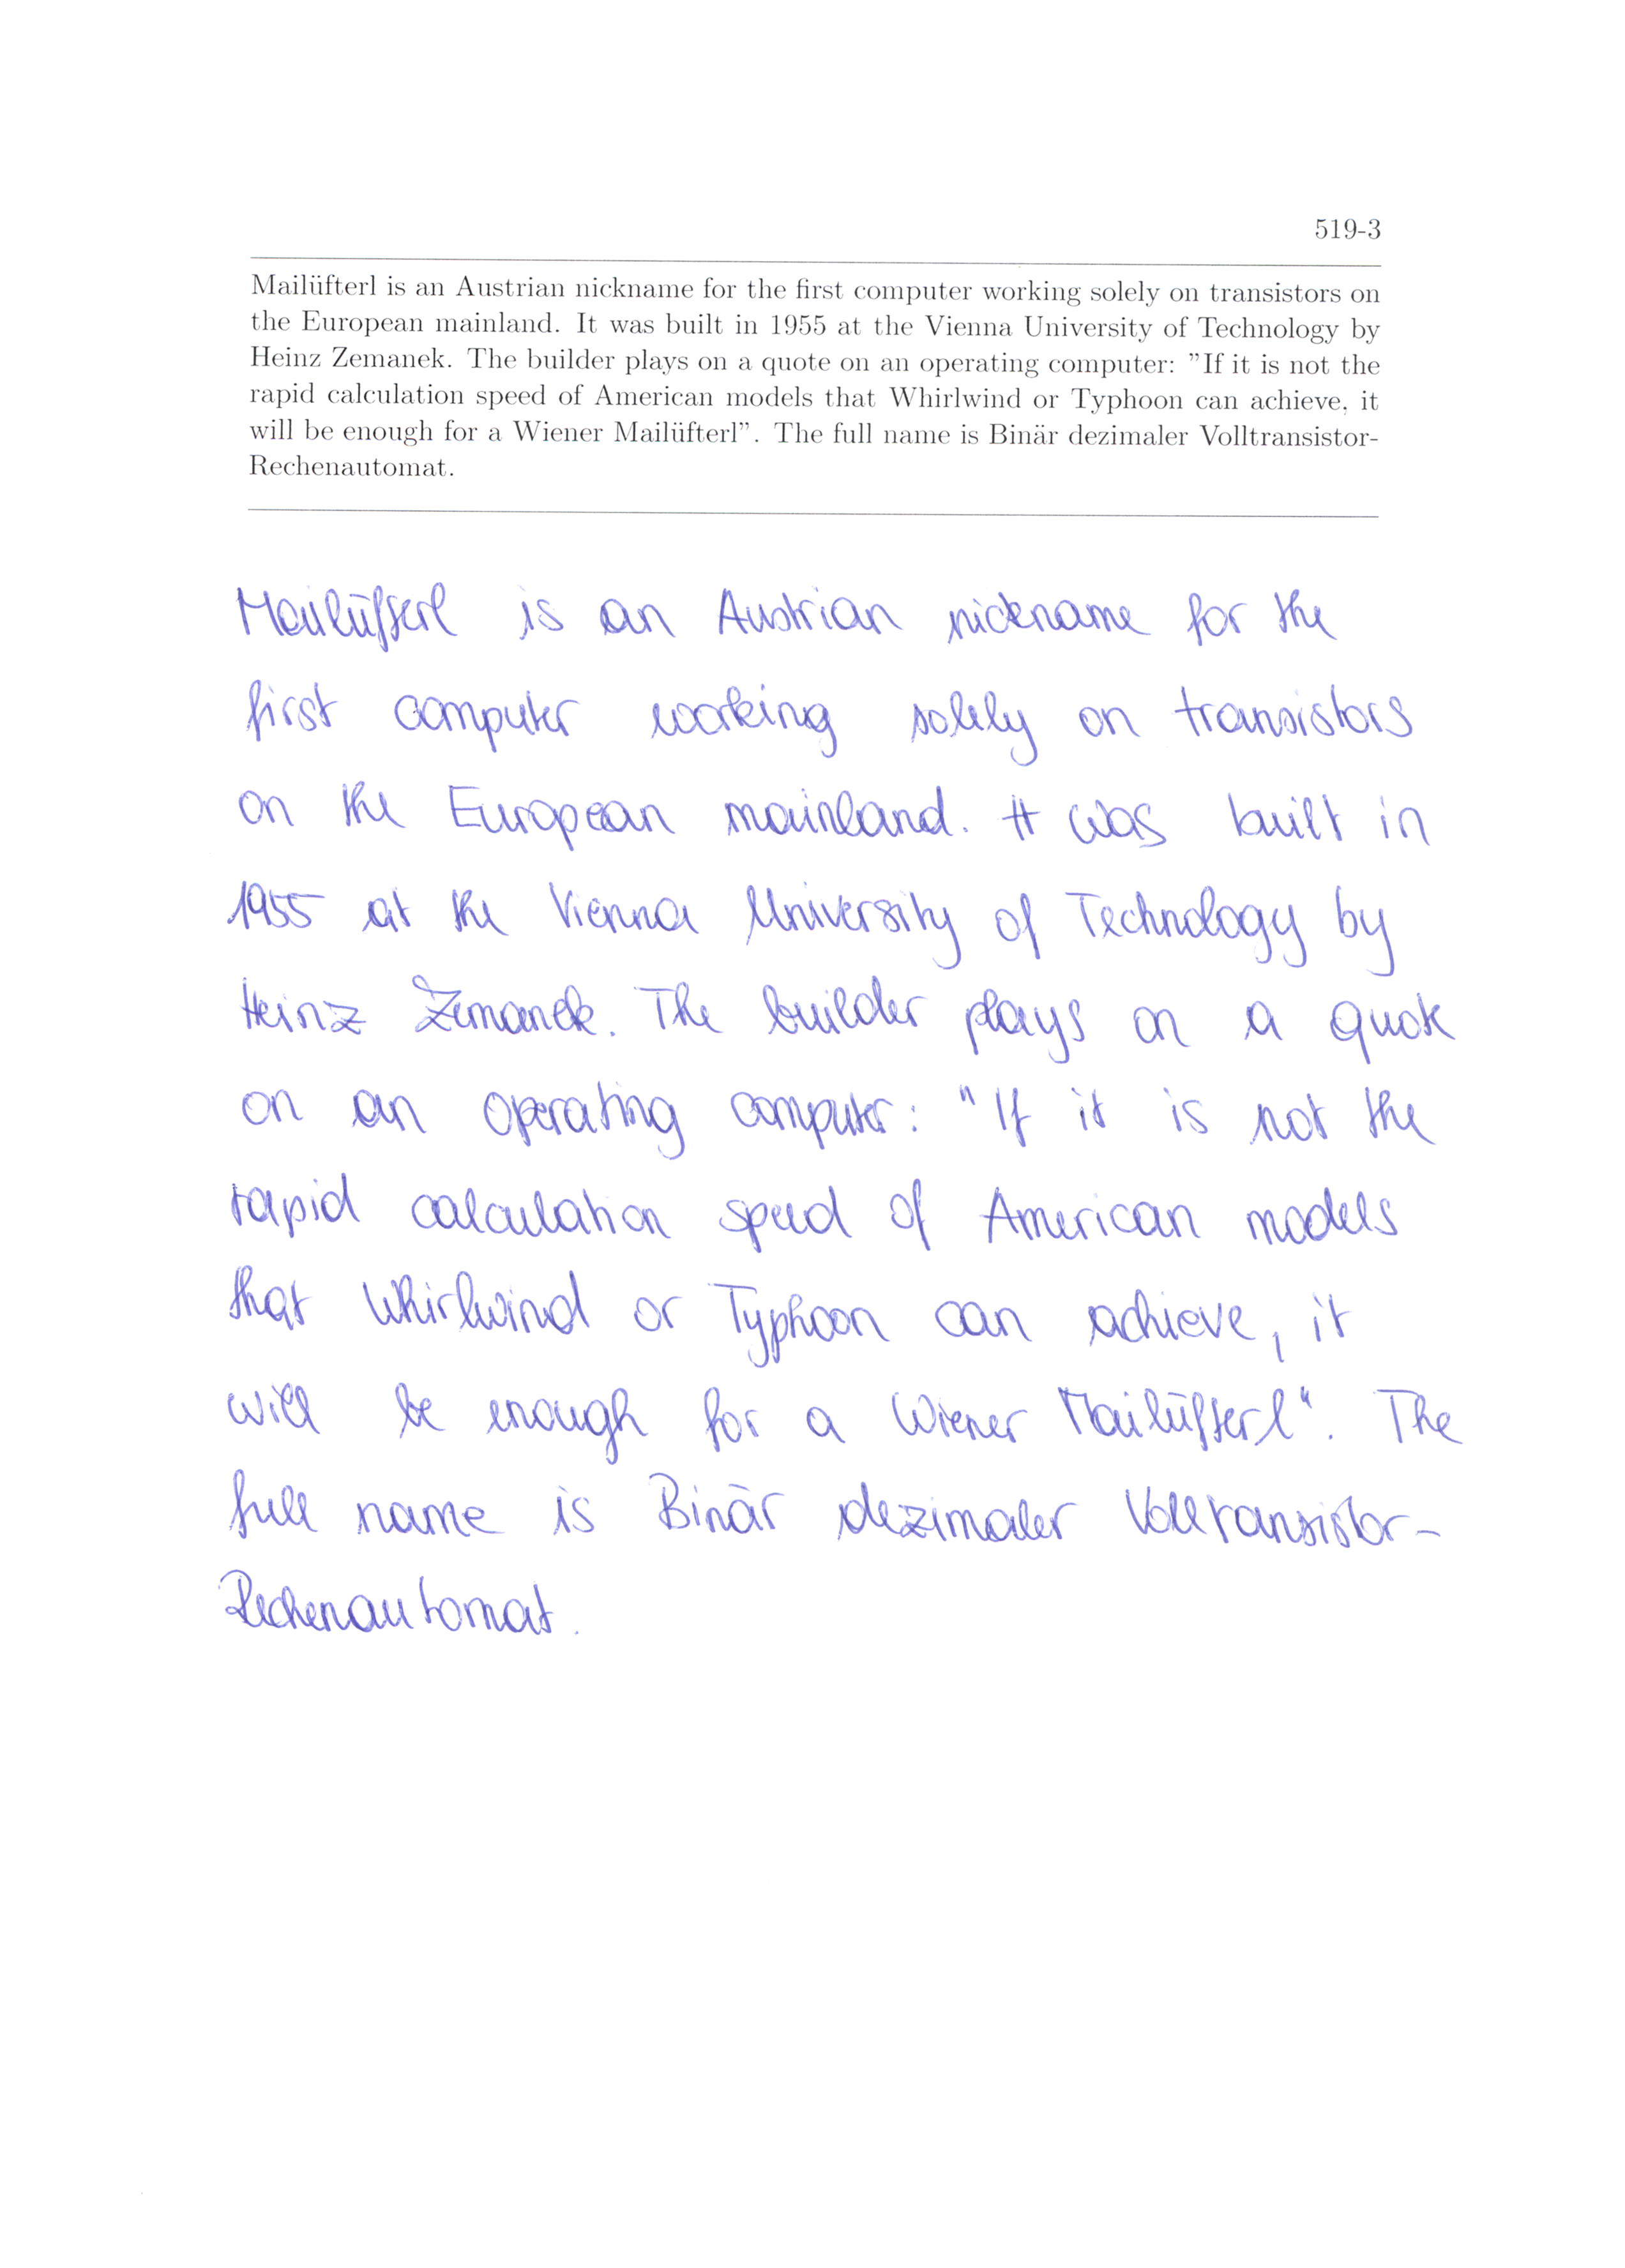 519-3
Mailüfterl is an Austrian nickname for the first computer working solely on transistors on
the European mainland. It was built in 1955 at the Vienna University of Technology by
Heinz Zemanek. The builder plays on a quote on an operating computer: "If it is not the
rapid calculation speed of American models that Whirlwind or Typhoon can achieve, it
will be enough for a Wiener Mailüfterl". The full name is Binär dezimaler Volltransistor-
Rechenautomat.
Mailüfterl is an Austrian nickname for the
first computer working solely on transistors
on the European mainland. It was built in
1955 at the Vienna University of Technology by
Heinz Zemanek. The builder plays on a quote
on an operating computer: "If it is not the
rapid calculation speed of American models
that Whirlwind or Typhoon can achieve, it
will be enough for a Wiener Mailüfterl". The
full name is Binär dezimaler Volltransistor-
Rechenautomat.